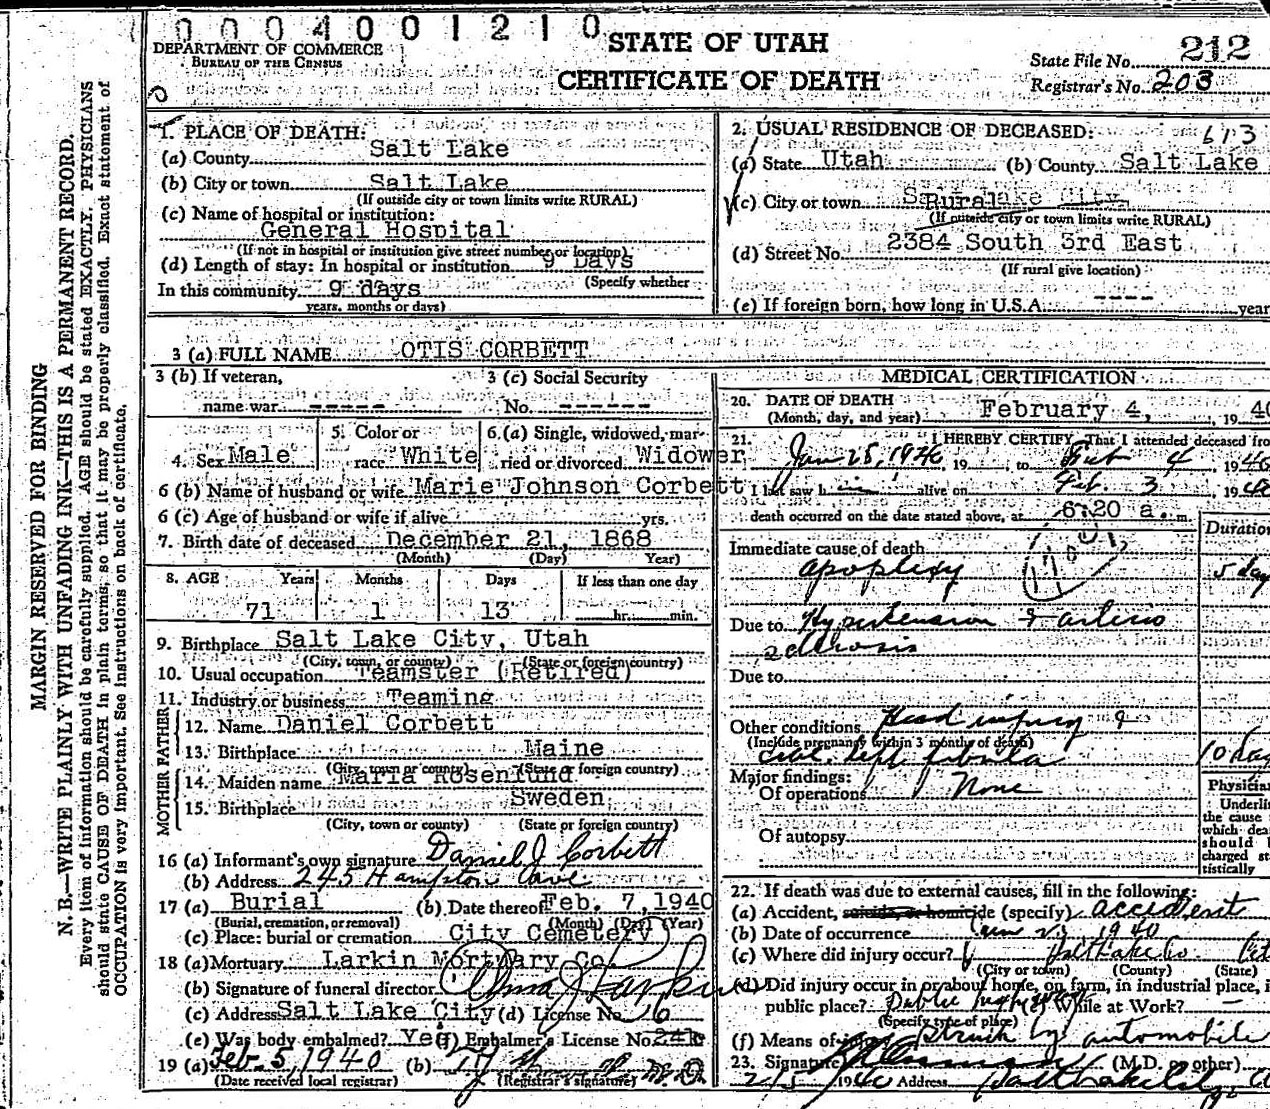 0 0 0 4 0 0 1 2 1 0
DEPARTMENT OF COMMERCE
BUREAU OF THE CENSUS
STATE OF UTAH
CERTIFICATE OF DEATH
State File No. 212
Registrar's No. 203
MARGIN RESERVED FOR BINDING
N. B.—WRITE PLAINLY WITH UNFADING INK—THIS IS A PERMANENT RECORD.
Every item of information should be carefully supplied. AGE should be stated EXACTLY. PHYSICIANS
should state CAUSE OF DEATH in plain terms, so that it may be properly classified. Exact statement of
OCCUPATION is very important. See instructions on back of certificate.
1. PLACE OF DEATH:
(a) County Salt Lake
(b) City or town Salt Lake
(If outside city or town limits write RURAL)
(c) Name of hospital or institution:
General Hospital
(If not in hospital or institution give street number or location)
(d) Length of stay: In hospital or institution 9 Days
(Specify whether
In this community 9 days
years, months or days)
2. USUAL RESIDENCE OF DECEASED: 613
(a) State Utah (b) County Salt Lake
(c) City or town Rural
(If outside city or town limits write RURAL)
(d) Street No. 2384 South 3rd East
(If rural give location)
(e) If foreign born, how long in U.S.A. ---- year
3 (a) FULL NAME OTIS CORBETT
3 (b) If veteran,
name war -----
3 (c) Social Security
No. ------
4. Sex Male
5. Color or
race White
6.(a) Single, widowed, mar-
ried or divorced Widower
6 (b) Name of husband or wife Marie Johnson Corbett
6 (c) Age of husband or wife if alive yrs.
7. Birth date of deceased December 21, 1868
(Month) (Day) Year)
8. AGE Years Months Days If less than one day
71 1 13 hr. min.
9. Birthplace Salt Lake City, Utah
(City, town, or county) (State or foreign country)
10. Usual occupation Teamster (Retired)
11. Industry or business Teaming
FATHER
12. Name Daniel Corbett
13. Birthplace Maine
(City, town or county) (State or foreign country)
MOTHER
14. Maiden name Maria Rosenlund
15. Birthplace Sweden
(City, town or county) (State or foreign country)
16 (a) Informant's own signature Daniel J Corbett
(b) Address 245 Hampton Ave
17 (a) Burial (b) Date thereof Feb. 7, 1940
(Burial, cremation, or removal) (Month) (Day) (Year)
(c) Place: burial or cremation City Cemetery
18 (a) Mortuary Larkin Mortuary Co
(b) Signature of funeral director
(c) Address Salt Lake City (d) License No. 16
(e) Was body embalmed? Yes (f) Embalmer's License No.
19 (a) Feb. 5, 1940 (b)
(Date received local registrar) (Registrar's signature)
MEDICAL CERTIFICATION
20. DATE OF DEATH
(Month, day, and year) February 4, , 19 40
21. I HEREBY CERTIFY, That I attended deceased fro
Jan 25, 1940, 19 , to Feb 4 , 19 40
I last saw h im alive on Feb. 3 , 19 40
death occurred on the date stated above, at 6:20 a. m.
Duration
Immediate cause of death
apoplexy 5 day
Due to Hypertension & arterio
sclerosis
Due to
Other conditions Head injury &
(Include pregnancy within 3 months of death)
left fibula 10 day
Major findings:
Of operations None
Of autopsy
Physician
Underli
the cause
which dea
should b
charged st
tistically
22. If death was due to external causes, fill in the following:
(a) Accident, suicide, or homicide (specify) accident
(b) Date of occurrence 1940
(c) Where did injury occur? Salt Lake Co.
(City or town) (County) (State)
(d) Did injury occur in or about home, on farm, in industrial place, i
public place? Public highway While at Work? —
(Specify type of place)
(f) Means of injury Struck by automobile
23. Signature (M.D. or other)
2/5 1940 Address Salt Lake City